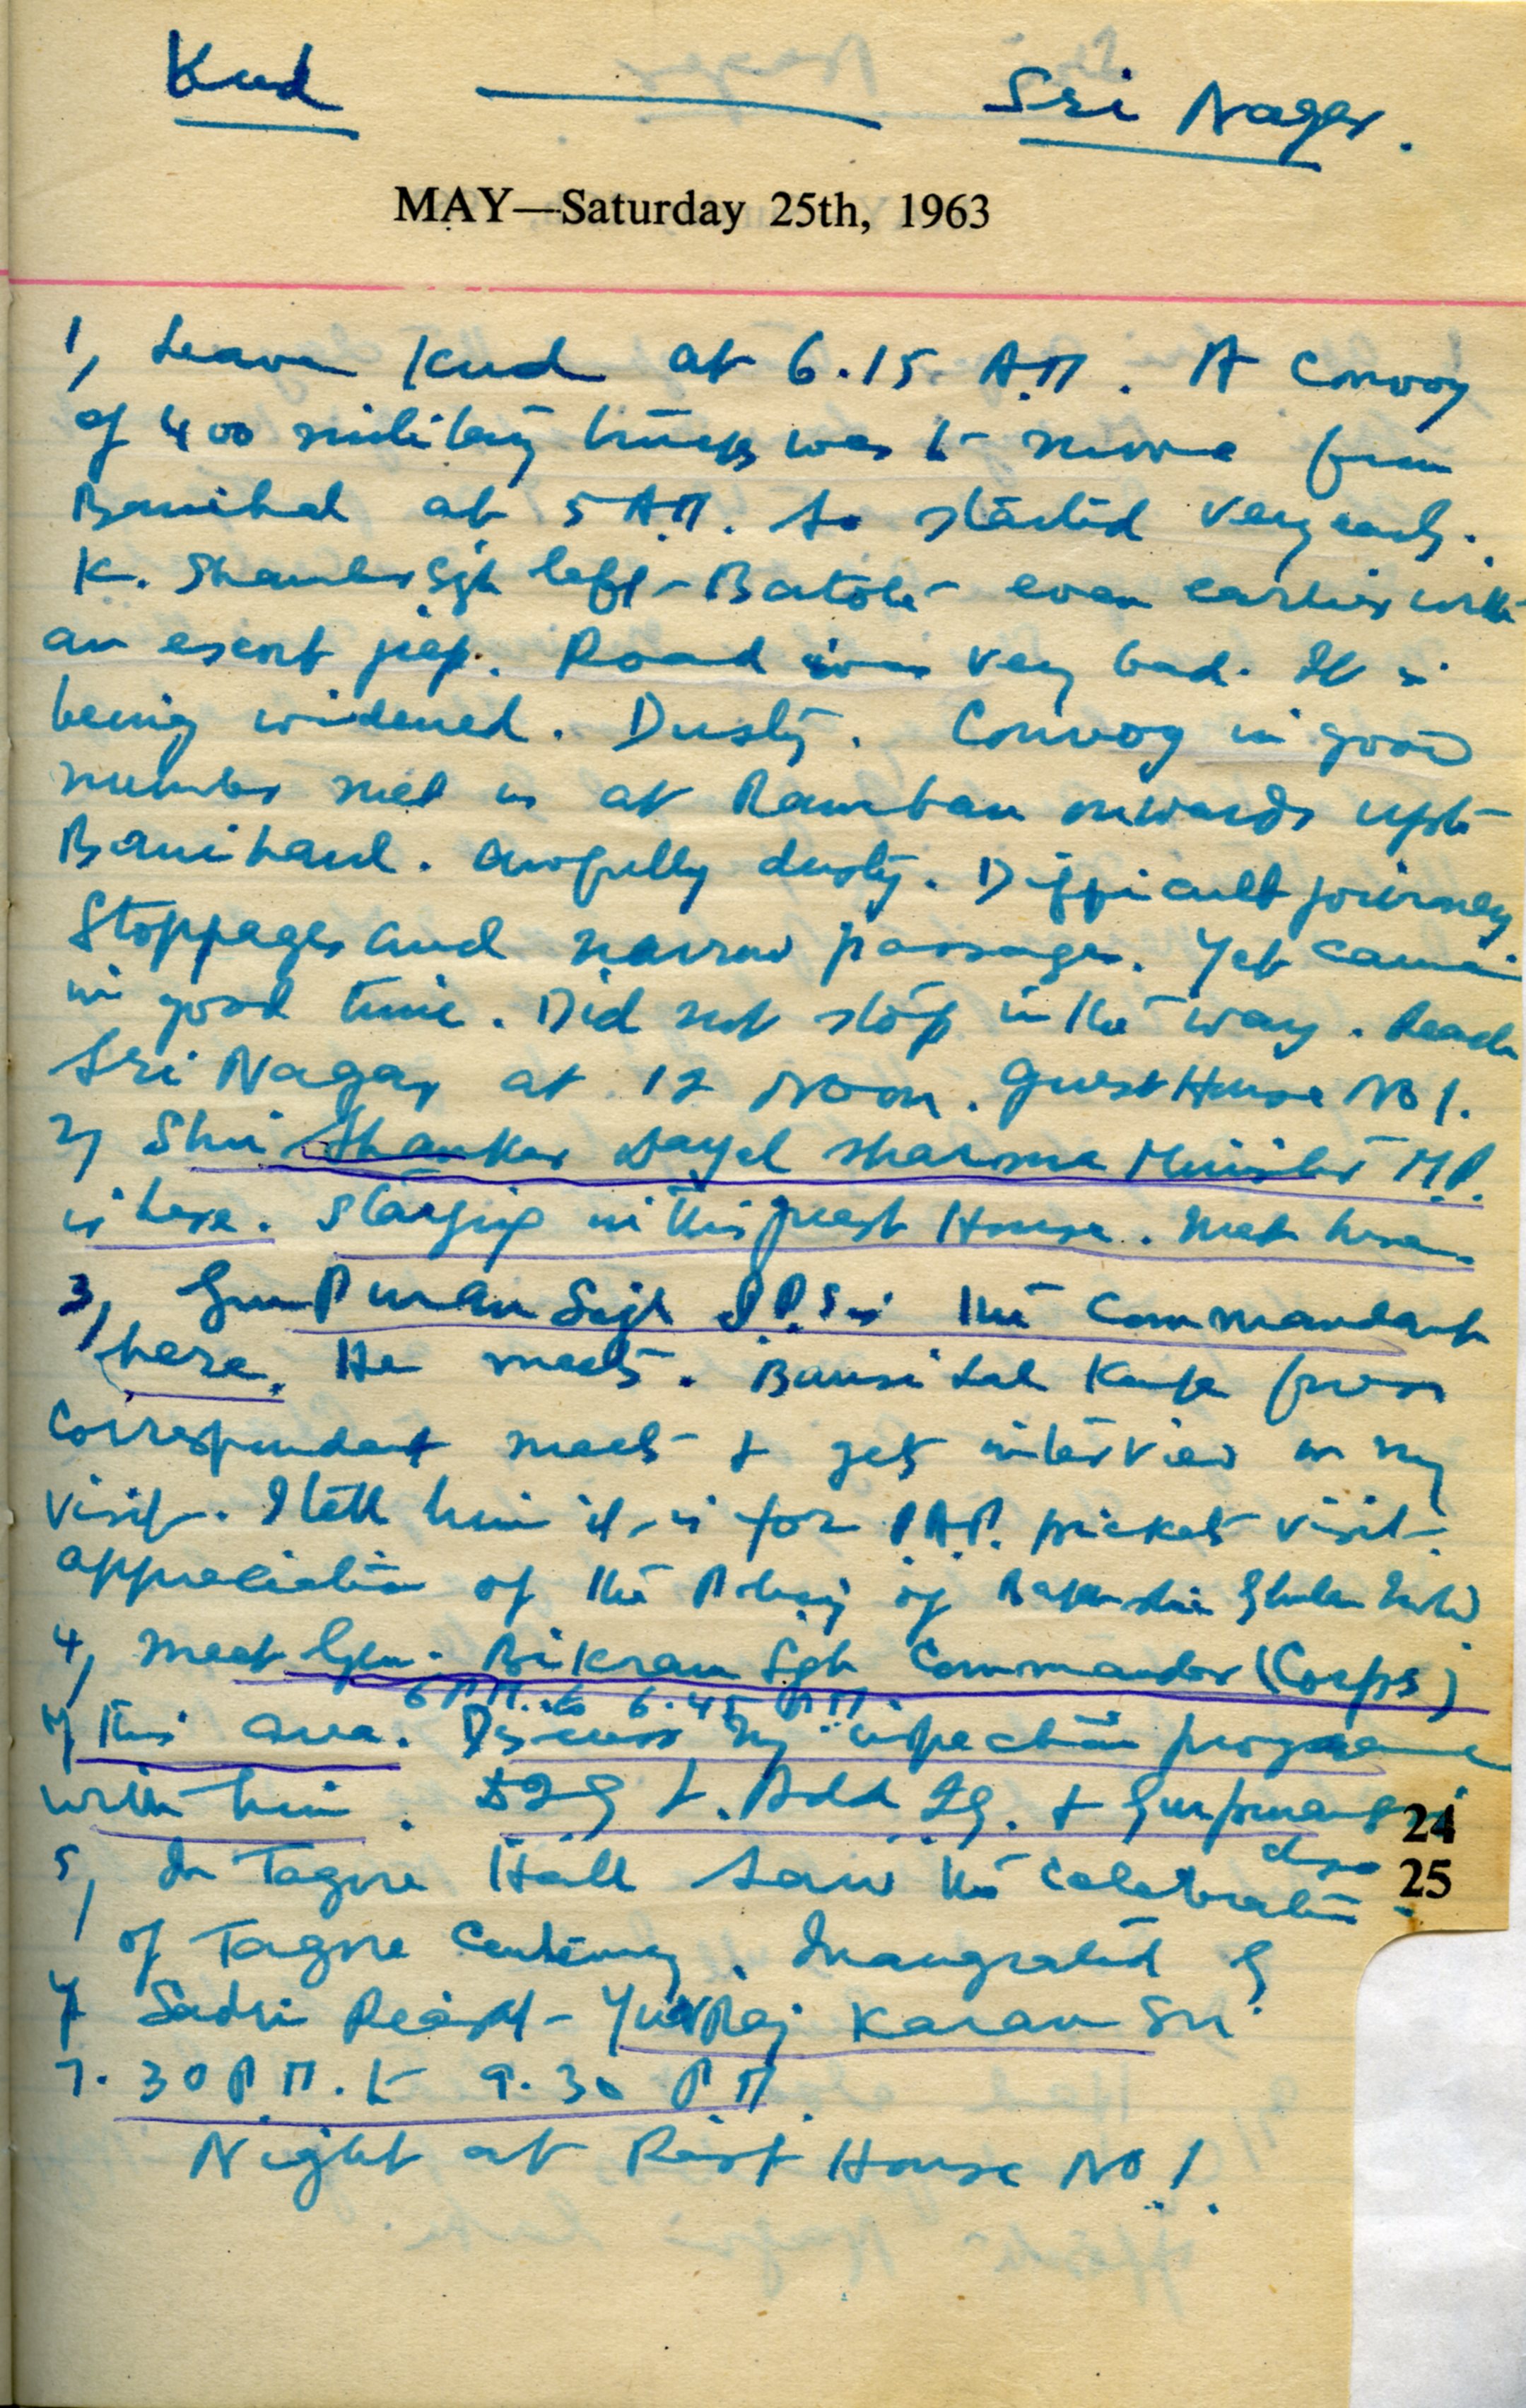 Kud — Sri Nagar.
MAY—Saturday 25th, 1963
1, Leave Kud at 6.15 A.M. A Convoy
of 400 military trucks was to move from
Banihal at 5 A.M. So started very early.
K. Shamsher Sgh left Batote even earlier with
an escort jeep. Road was very bad. It is
being widened. Dusty. Convoy in good
number met us at Ramban onwards upto
Banihaul. Awfully dusty. Difficult journey
Stoppages and narrow passages. Yet came
in good time. Did not stop in the way. Reach
Sri Nagar at 12 Noon. Guest House No 1.
2, Shri Shanker Dayal Sharma Minister M.P.
is here. Staying in this Guest House. Met here.
3, Gurpuran Sigh I.P.S. is the Commandant
here. He meets. Bansi Lal press
Correspondent meets & gets interview on my
visit. I tell him it is for P.A.P. pickets visit.
appreciation of the Policy of Bakshi Ghulam
4, Meet Gen. Bikram Sgh Commander (Corps)
6 P.M. to 6.45 P.M.
of this area. Discuss my inspection programme
with him. DIG & Add IG. & Gurpuran S
24
also
5, In Tagore Hall Saw the Celebration
25
of Tagore Centenary. Inaugrated by
Sadri Reasat - YuvRaj Karan
7.30 P.M. to 9.30 P.M.
Night at Rest House No 1.